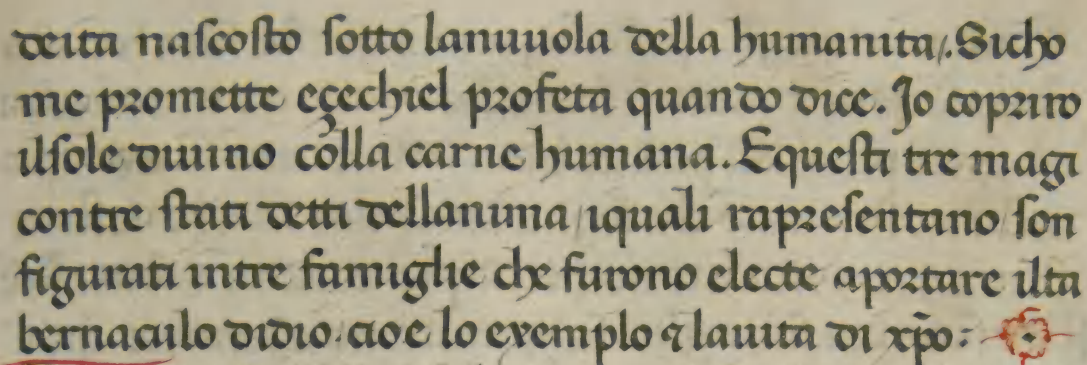 deita naſcoſto ſotto lanuuola della humanita/. Sicho
me promette eçechiel profeta quando dice. Jo copriro
ilſole diuino cōlla carne humana. Equeſti tre magi
contre ſtati detti dellanima / iquali rapreſentano ſon
figurati intre famiglie che furono electe aportare ilta
bernaculo didio. cioe lo exemplo ⁊ lauita di xp̄o: